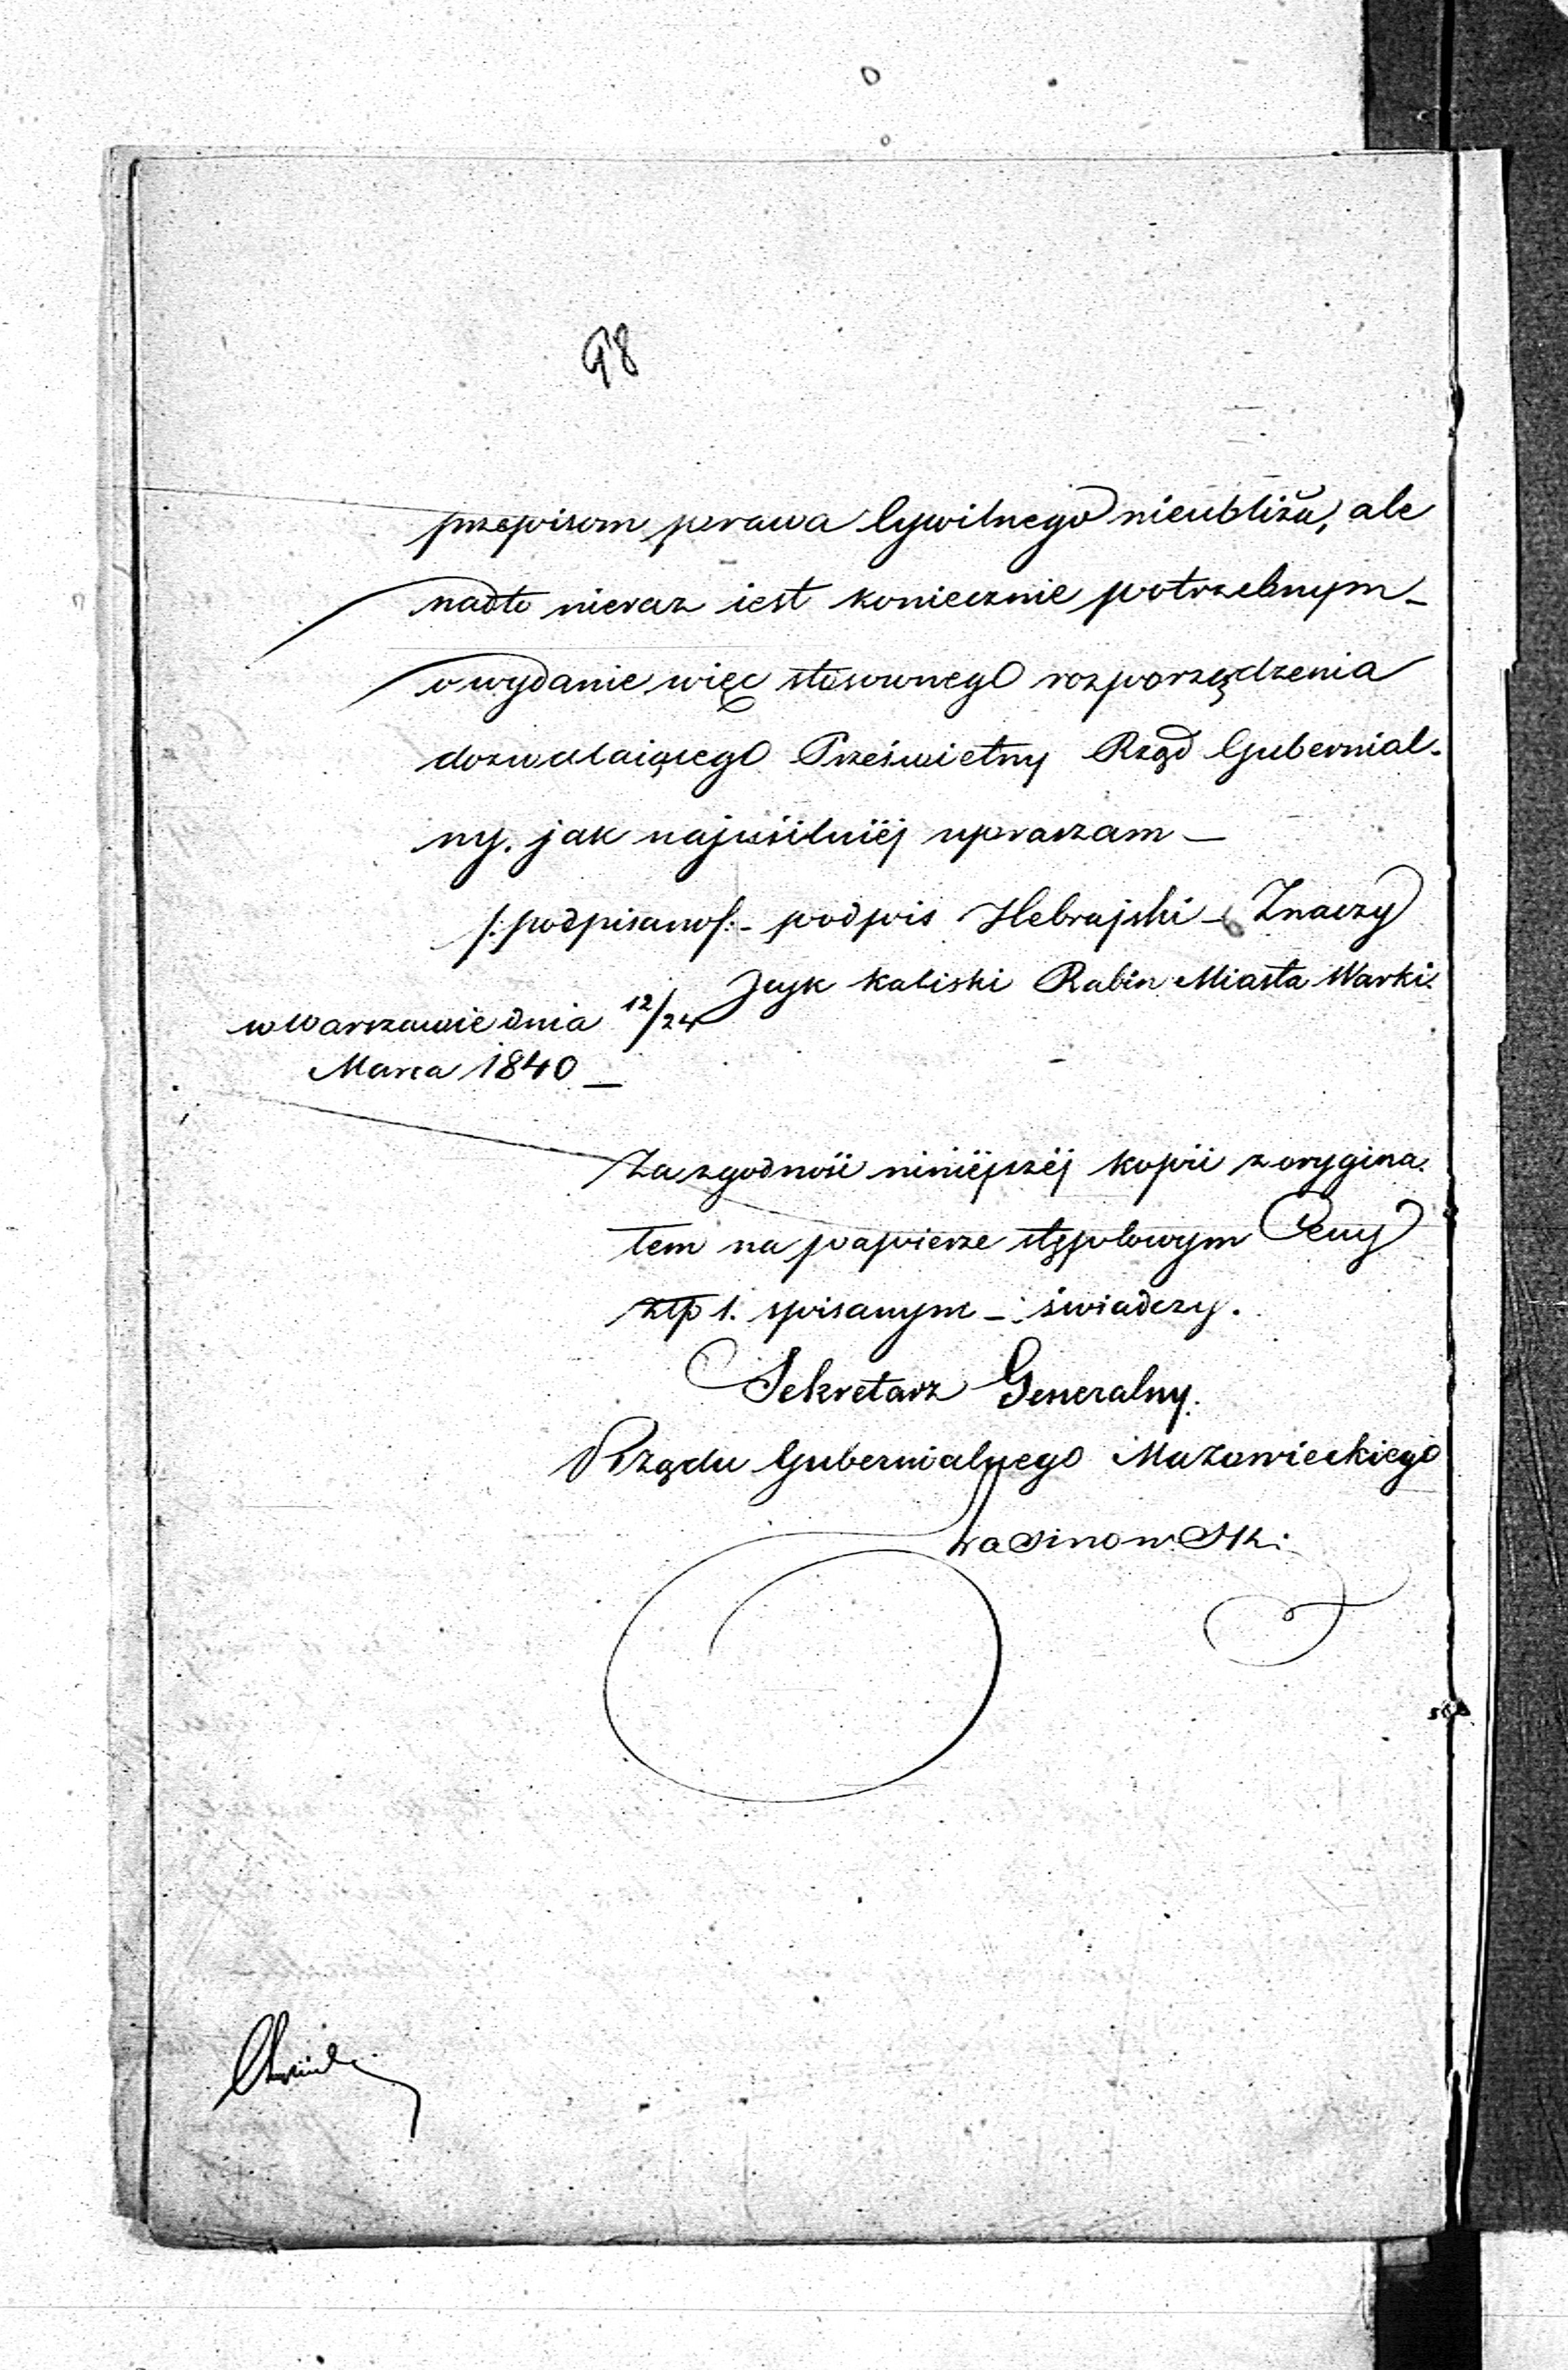 98
przepisom prawa Cywilnego nieubliża, ale
nadto nieraz iest koniecznie potrzebnym –
o wydanie więc stosownego rozporządzenia
dozwalaiącego Prześwietny Rząd Gubernial-
ny. jak najusilniéj upraszam –
/:podpisano/:- podpis Hebrajski – Znaczy
Jcyk Kaliski Rabin Miasta Warki.
w Warszawie dnia 12/24
Marca 1840 –
Za zgodność niniéjszéj kopii z orygina-
łem na papierze stęplowym Ceny
złp 1. spisanym – świadczy.
Sekretarz Generalny.
Rządu Gubernialnego Mazowieckiego